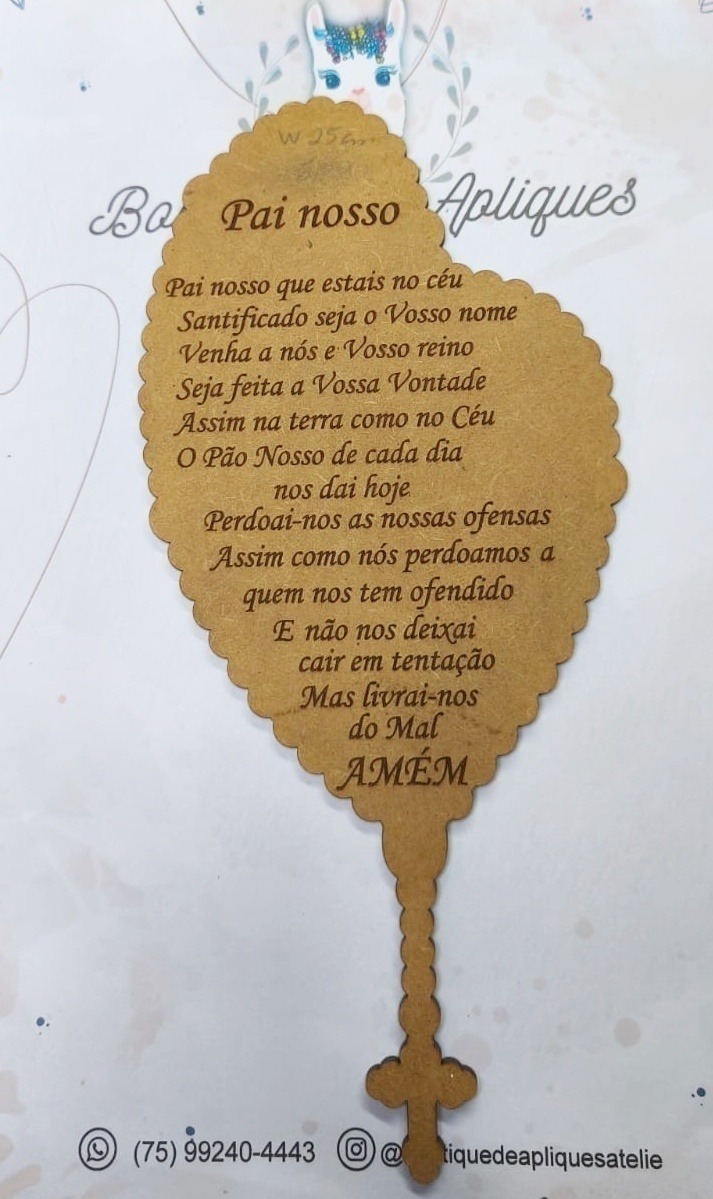 W 25cm
Pai nosso
Apliques
Pai nosso que estais no céu
Santificado seja o Vosso nome
Venha a nós e Vosso reino
Seja feita a Vossa Vontade
Assim na terra como no Céu
O Pão Nosso de cada dia
nos dai hoje
Perdoai-nos as nossas ofensas
Assim como nós perdoamos a
quem nos tem ofendido
E não nos deixai
cair em tentação
Mas livrai-nos
do Mal
AMÉM
(75) 99240-4443 @ tiquedeapliquesatelie